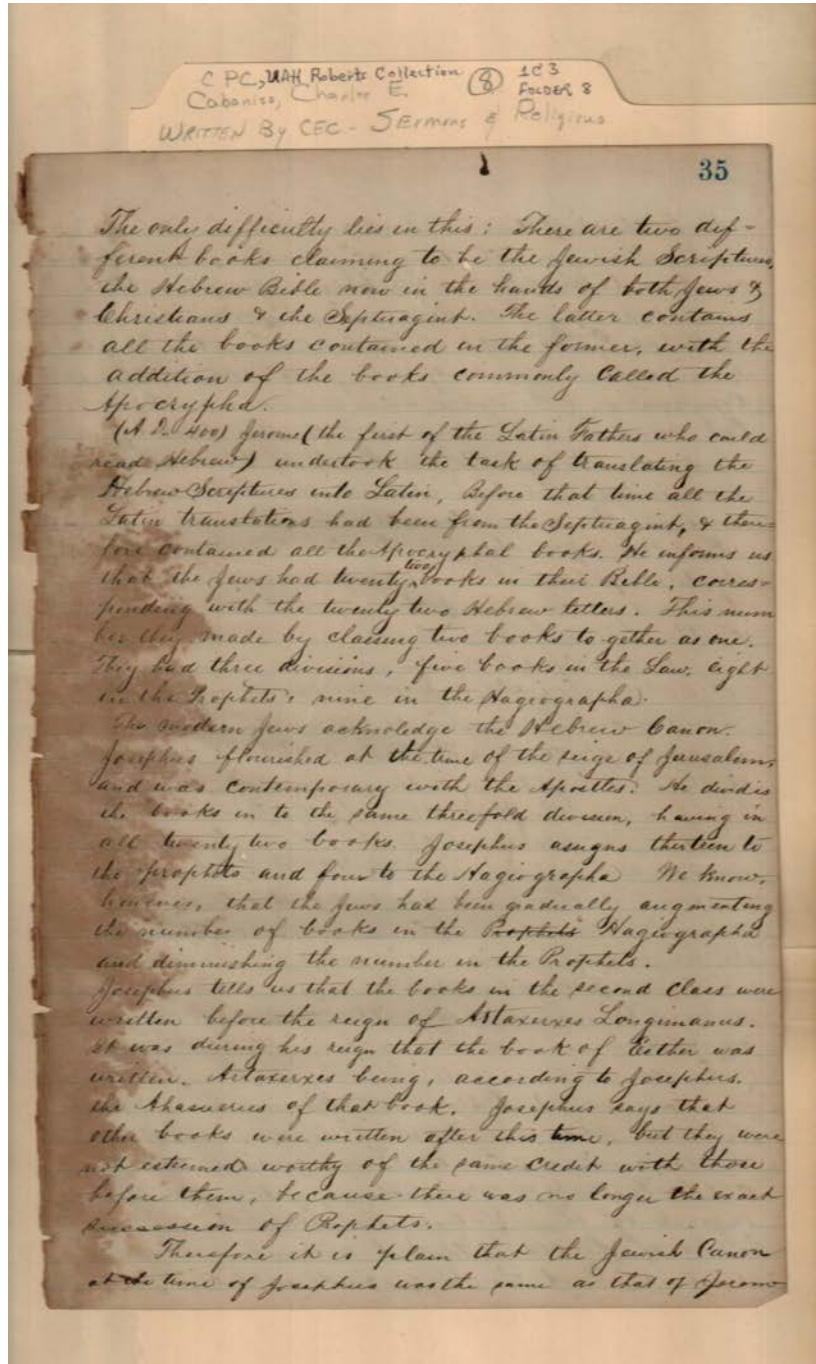 CPC, UAH Roberts Collection (8) 1C3
Cabaniss, Charles E. FOLDER 8
WRITTEN By CEC - SErmons & Religious
35
The only difficulty lies in this: There are two dif-
ferent books claiming to be the Jewish Scriptures,
the Hebrew Bible now in the hands of both Jews &
Christians & the Septuagint. The latter contains
all the books contained in the former, with the
addition of the books commonly called the
Apocrypha.
(A.D. 400) Jerome (the first of the Latin Fathers who could
read Hebrew) undertook the task of translating the
Hebrew Scriptures into Latin, Before that time all the
Latin translations had been from the Septuagint, & there-
fore contained all the Apocryphal books. He informs us
that the Jews had twenty two books in their Bible, corres-
ponding with the twenty two Hebrew letters. This num
ber they made by classing two books to gether as one.
They had three divisions, five books in the Law, eight
in the Prophets, nine in the Hagiographa.
The modern Jews acknoledge the Hebrew Canon.
Josephus flourished at the time of the seige of Jerusalem,
and was contemporary with the Apostles. He divides
the books in to the same threefold division, having in
all twenty two books. Josephus assigns thirteen to
the prophets and four to the Hagiographa We know,
however, that the Jews had been gradually augmenting
the number of books in the Prophets Hagiographa
and diminishing the number in the Prophets.
Josephus tells us that the books in the second class were
written before the reign of Artaxerxes Longimanus.
It was during his reign that the book of Esther was
written. Artaxerxes being, according to Josephus.
the Ahasuerus of that book. Josephus says that
other books were written after this time, but they were
not esteemed worthy of the same credit with those
before them, because there was no longer the exact
succession of Prophets.
Therefore it is plain that the Jewish Canon
at the time of Josephus was the same as that of Jerome